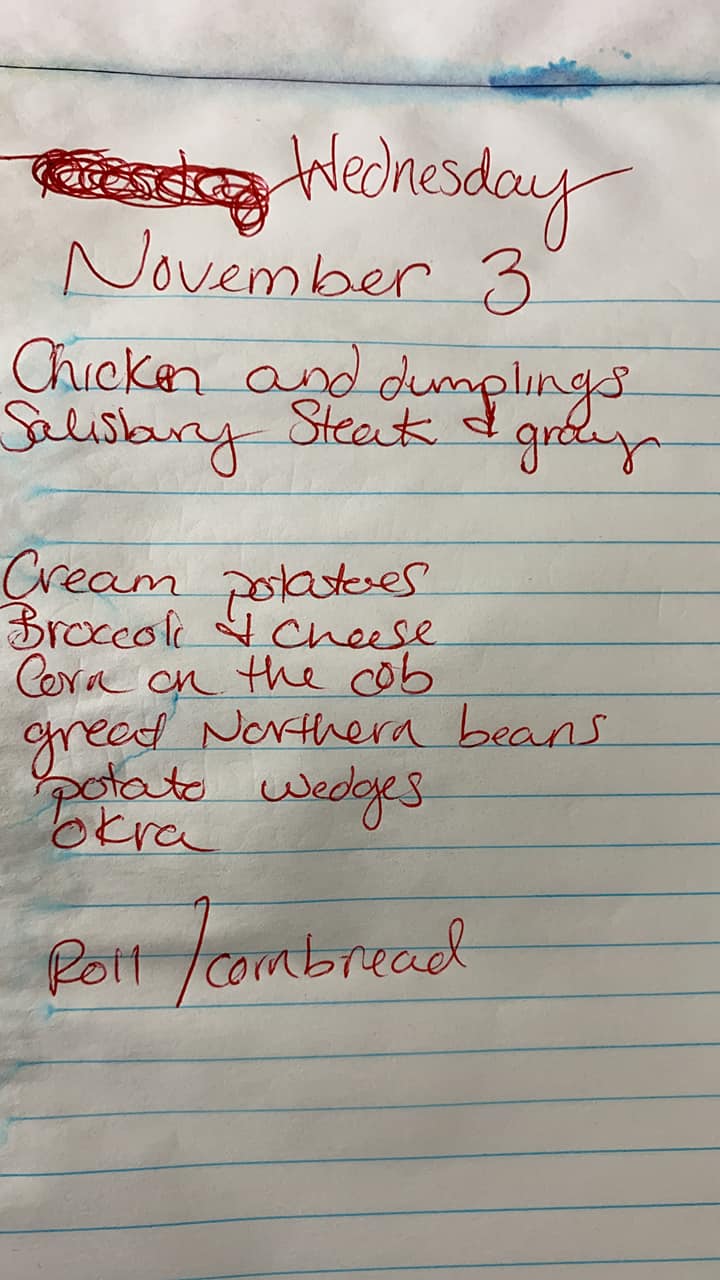 Wednesday
November 3
Chicken and dumplings
Salisbury Steak & gravy
Cream potatoes
Broccoli & Cheese
Corn on the cob
great Northern beans
potato wedges
okra
Roll / cornbread